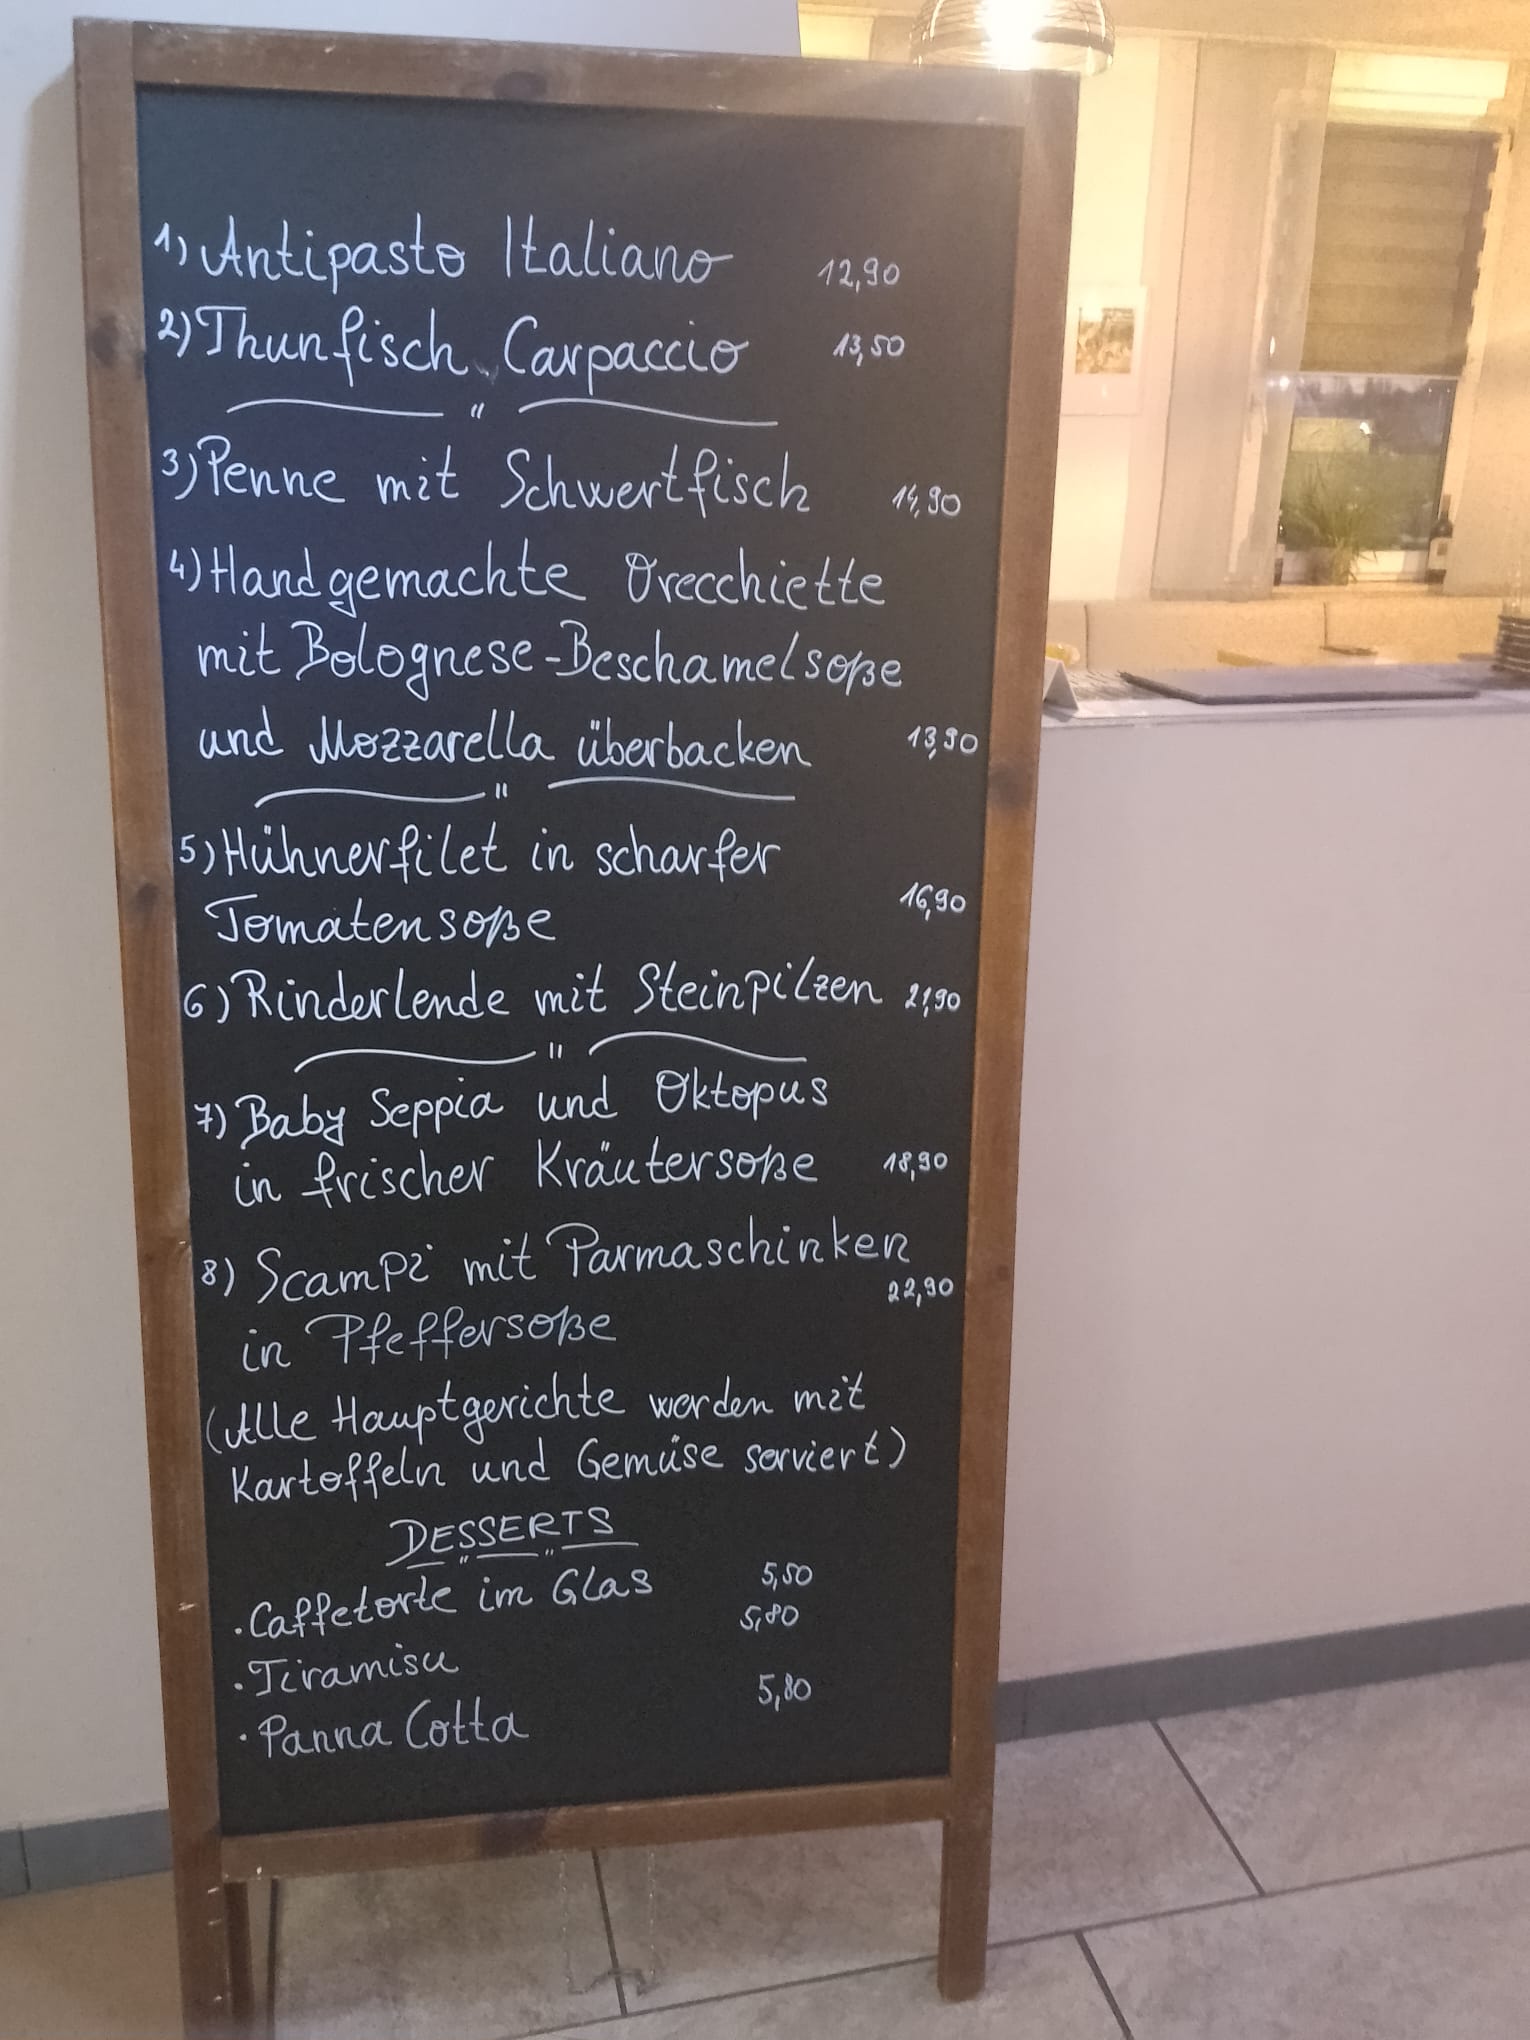 1) Antipasto Italiano 12,90
2) Thunfisch Carpaccio 13,50
3) Penne mit Schwertfisch 14,90
4) Handgemachte Orecchiette
mit Bolognese-Beschamelsoße
und Mozzarella überbacken 13,90
5) Hühnerfilet in scharfer
Tomatensoße 16,90
6) Rinderlende mit Steinpilzen 21,90
7) Baby Seppia und Oktopus
in frischer Kräutersoße 18,90
8) Scampi mit Parmaschinken
22,90
in Pfeffersoße
(Alle Hauptgerichte werden mit
Kartoffeln und Gemüse serviert)
DESSERTS
· Caffetorte im Glas 5,50
· Tiramisu 5,80
· Panna Cotta 5,80